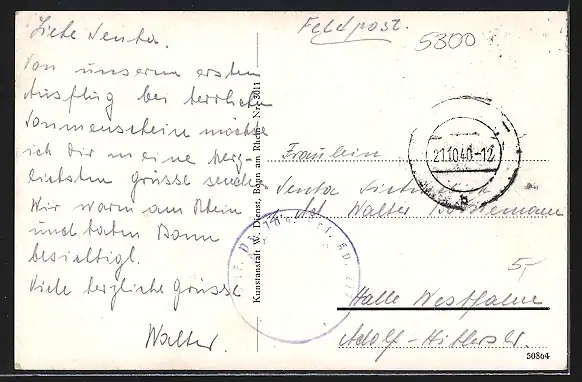 Feldpost.
5300
Liebe Senta.
Von unserm ersten
Ausflug bei herrlichen
Sonnenschein möchte
ich Dir meine herz-
lichsten Grüsse senden
Wir warn am Rhein
und haben Bonn
besichtigt.
Viele herzliche Grüsse
Walter.
Kunstanstalt W. Dienst, Bonn am Rhein Nr. 3011
21.10.40-12
Fräulein
Senta
Walter
5,-
Halle Westfalen
Adolf-Hitlerstr.
50864